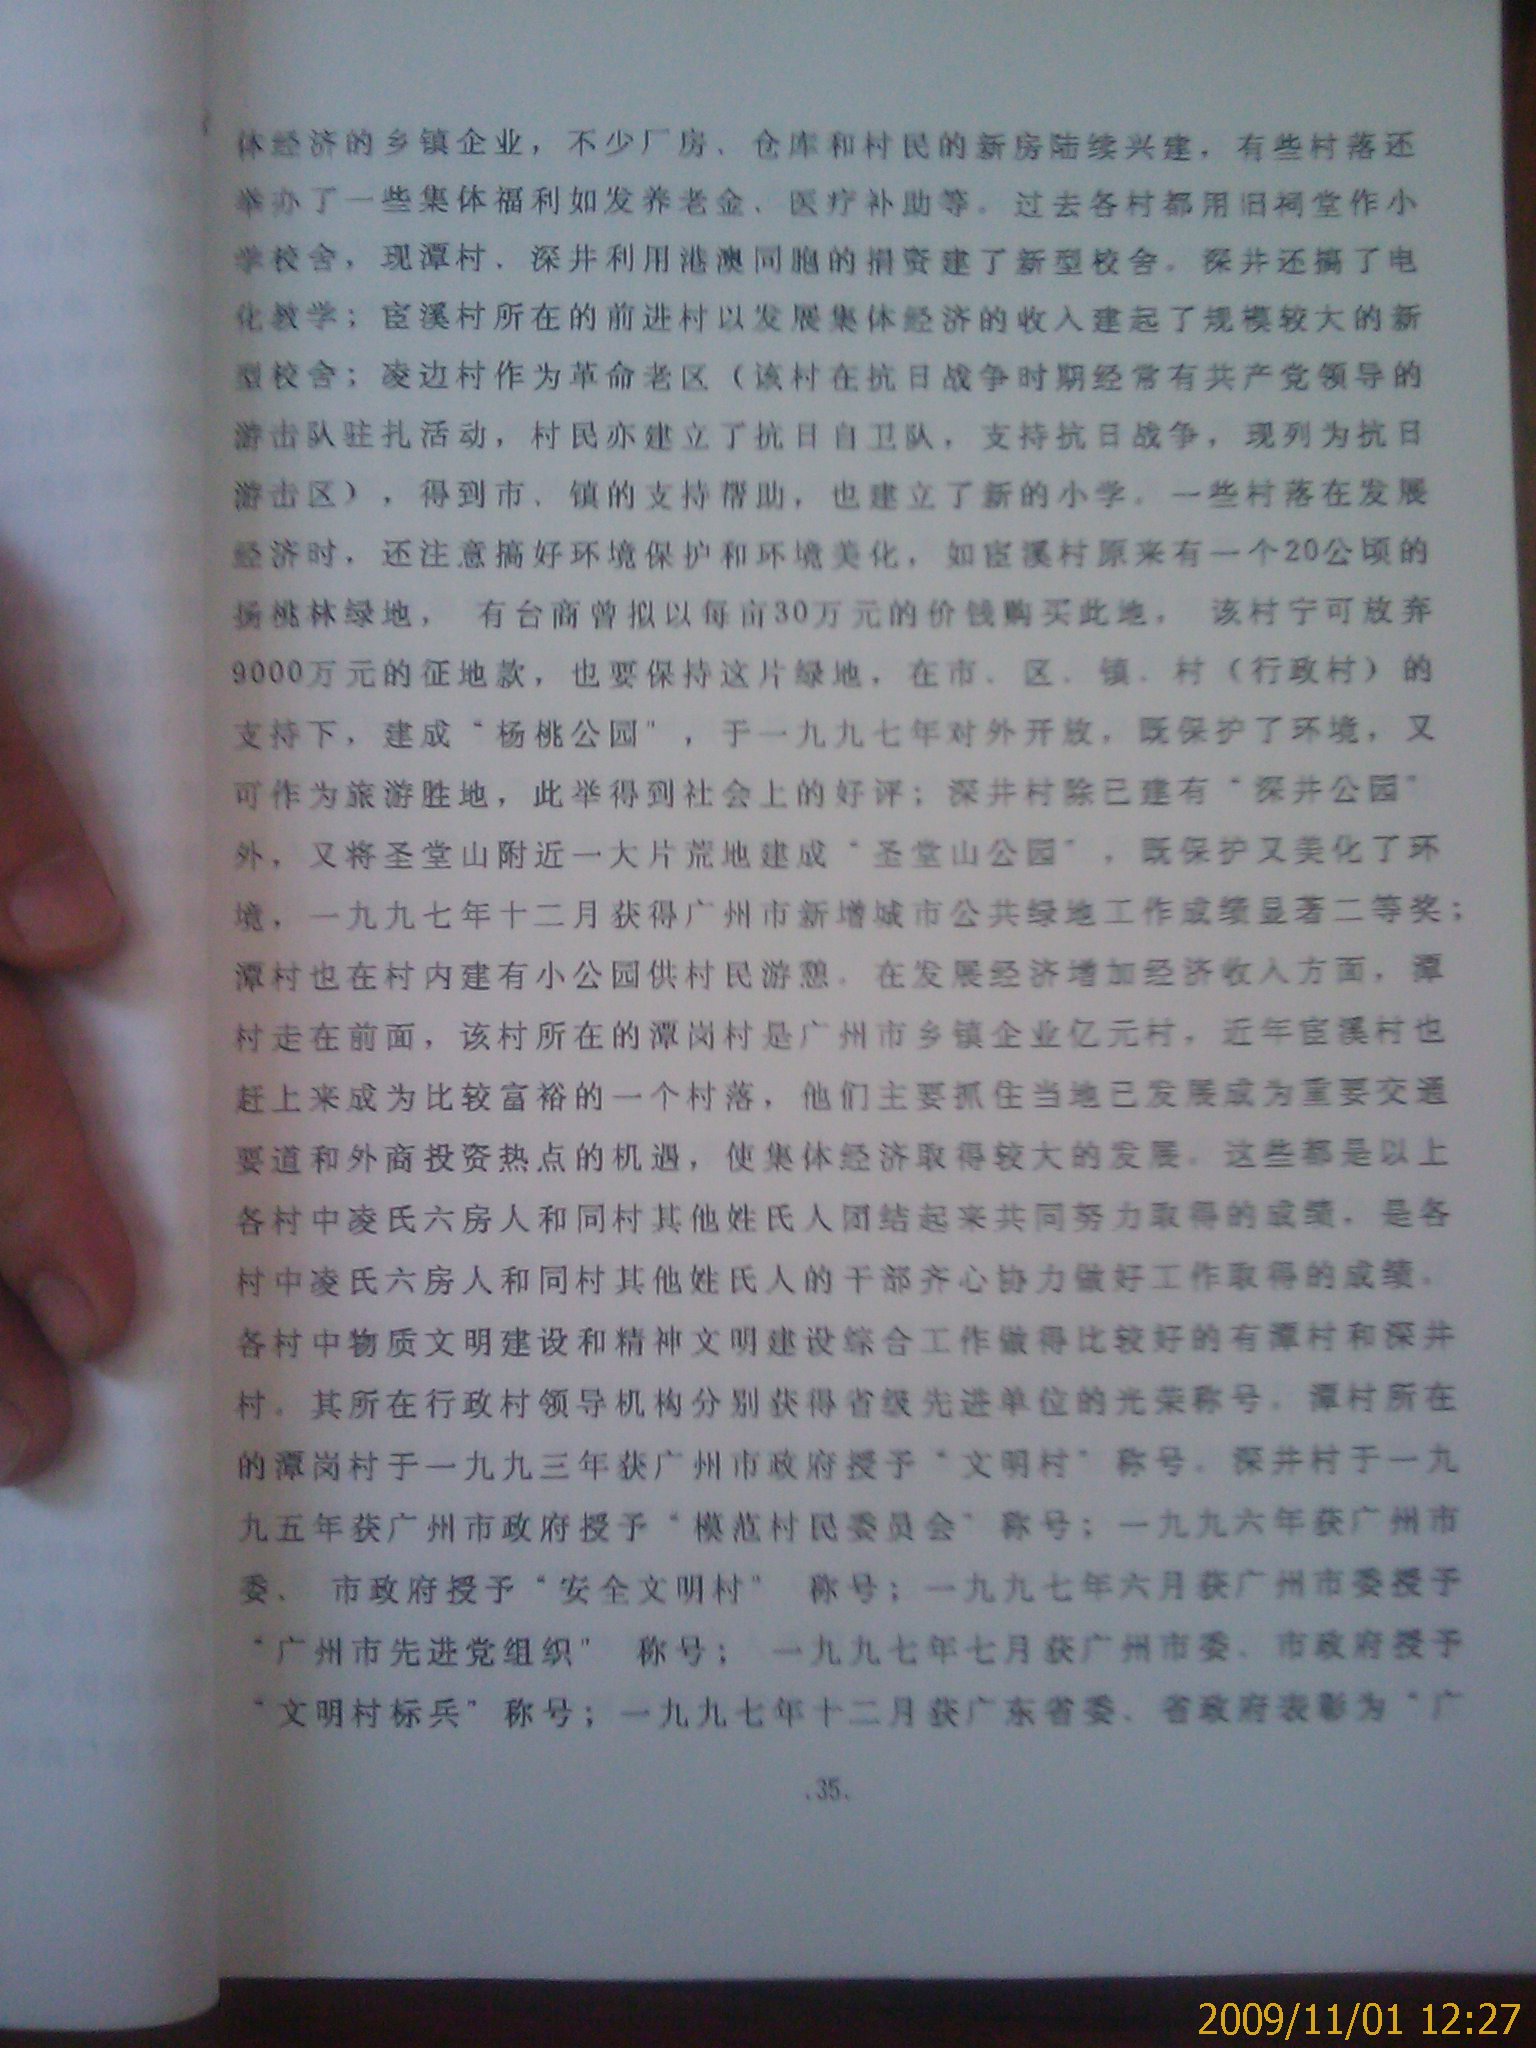 体经济的乡镇企业，不少厂房、仓库和村民的新房陆续兴建，有些村落还
举办了一些集体福利如发养老金、医疗补助等。过去各村都用旧祠堂作小
学校舍，现潭村、深井利用港澳同胞的捐资建了新型校舍。深井还搞了电
化教学；宦溪村所在的前进村以发展集体经济的收入建起了规模较大的新
型校舍；凌边村作为革命老区（该村在抗日战争时期经常有共产党领导的
游击队驻扎活动，村民亦建立了抗日自卫队，支持抗日战争，现列为抗日
游击区），得到市、镇的支持帮助，也建立了新的小学。一些村落在发展
经济时，还注意搞好环境保护和环境美化，如宦溪村原来有一个20公顷的
杨桃林绿地， 有台商曾拟以每亩30万元的价钱购买此地， 该村宁可放弃
9000万元的征地款，也要保持这片绿地，在市、区、镇、村（行政村）的
支持下，建成“杨桃公园”，于一九九七年对外开放，既保护了环境，又
可作为旅游胜地，此举得到社会上的好评；深井村除已建有“深井公园”
外，又将圣堂山附近一大片荒地建成“圣堂山公园”，既保护又美化了环
境，一九九七年十二月获得广州市新增城市公共绿地工作成绩显著二等奖；
潭村也在村内建有小公园供村民游憩。在发展经济增加经济收入方面，潭
村走在前面，该村所在的潭岗村是广州市乡镇企业亿元村，近年宦溪村也
赶上来成为比较富裕的一个村落，他们主要抓住当地已发展成为重要交通
要道和外商投资热点的机遇，使集体经济取得较大的发展。这些都是以上
各村中凌氏六房人和同村其他姓氏人团结起来共同努力取得的成绩，是各
村中凌氏六房人和同村其他姓氏人的干部齐心协力做好工作取得的成绩。
各村中物质文明建设和精神文明建设综合工作做得比较好的有潭村和深井
村。其所在行政村领导机构分别获得省级先进单位的光荣称号。潭村所在
的潭岗村于一九九三年获广州市政府授予“文明村”称号。深井村于一九
九五年获广州市政府授予“模范村民委员会”称号；一九九六年获广州市
委、 市政府授予“安全文明村” 称号；一九九七年六月获广州市委授予
“广州市先进党组织” 称号； 一九九七年七月获广州市委、市政府授予
“文明村标兵”称号；一九九七年十二月获广东省委、省政府表彰为“广
.35.
2009/11/01 12:27